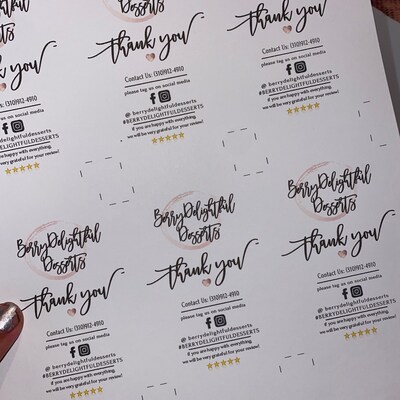 Desserts
you
(310)912-4910
us on social media
berrydelightfuldesserts
#BERRYDELIGHTFULDESSERTS
If you are happy with everything,
we will be very grateful for your review!
Desserts
thank you
Contact Us: (310)912-4910
please tag us on social media
@ berrydelightfuldesserts
#BERRYDELIGHTFULDESSERTS
If you are happy with everything,
we will be very grateful for your review!
thank you
Contact Us: (310)912-4910
please tag us on social media
@ berrydelightfuldesserts
#BERRYDELIGHTFULDESSERTS
If you are happy with everything,
we will be very grateful for your review!
BerryDelightful
Desserts
thank you
Contact Us: (310)912-4910
please tag us on social media
@ berrydelightfuldesserts
#BERRYDELIGHTFULDESSERTS
If you are happy with everything,
we will be very grateful for your review!
BerryDelightful
Desserts
thank you
Contact Us: (310)912-4910
please tag us on social media
@ berrydelightfuldesserts
#BERRYDELIGHTFULDESSERTS
If you are happy with everything,
we will be very grateful for your review!
BerryDelightful
Desserts
thank you
Contact Us: (310)912-4910
please tag us on social media
@ berrydelightfuldesserts
#BERRYDELIGHTFULDESSERTS
If you are happy with everything,
we will be very grateful for your review!